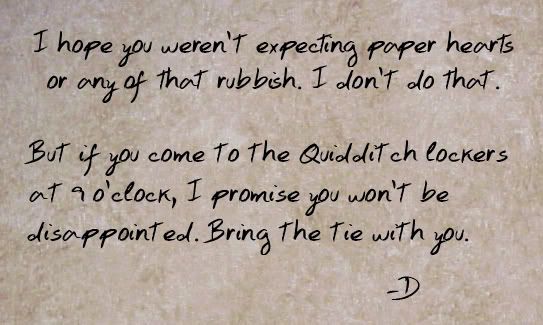 I hope you weren't expecting paper hearts
or any of that rubbish. I don't do that.
But if you come to the Quidditch lockers
at 9 o'clock, I promise you won't be
disappointed. Bring the tie with you.
-D